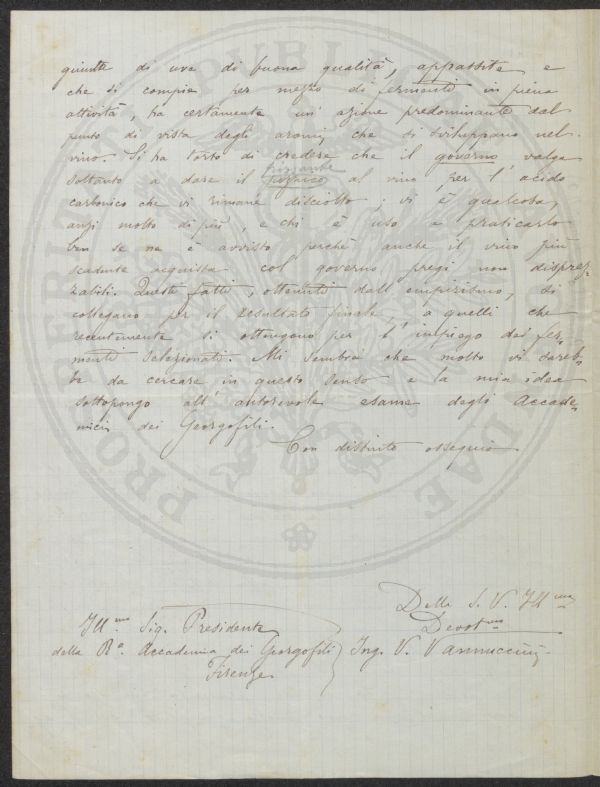 giunta di uva di buona qualità, appassita e
che si compie per mezzo di fermenti in piena
attività, ha certamente un' azione predominante dal
punto di vista degli aromi, che si sviluppano nel
vino. Si ha torto di credere che il governo valga
frizzante
soltanto a dare il al vino per l' acido
carbonico che vi rimane disciolto; vi è qualcosa,
anzi molto di più, e chi è uso a praticarlo
ben se ne è avvisto perchè anche il vino più
scadente acquista col governo pregi non disprez=
zabili. Questi fatti, ottenuti dall' empirismo, si
collegano per il resultato finale, a quelli che
recentemente si ottengono per l' impiego dei fer=
menti selezionati. Mi sembra che molto vi sareb=
be da cercare in questo senso e la mia idea
sottopongo all' autorevole esame degli Accade=
mici dei Georgofili.
Con distinto ossequio
Della S. V. Ill.ma
Devot.mo
Ing. V. Vannuccini
Ill.mo Sig. Presidente
della R.a Accademia dei Georgofili
Firenze
PROSPERITATI DUAE